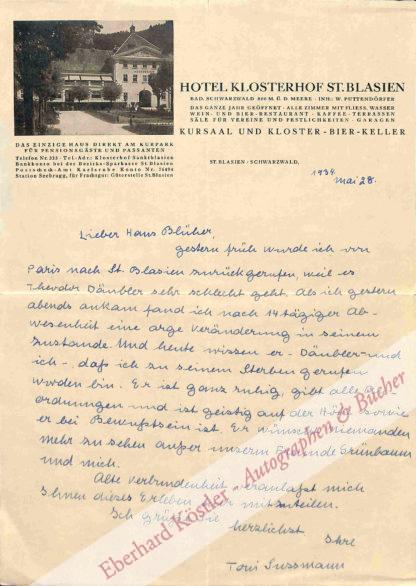 HOTEL KLOSTERHOF ST. BLASIEN
BAD. SCHWARZWALD 800 M. Ü. D. MEERE - INH.: W. PUTTENDÖRFER
DAS GANZE JAHR GEÖFFNET - ALLE ZIMMER MIT FLIESS. WASSER
WEIN- UND BIER-RESTAURANT - KAFFEE - TERRASSEN
SÄLE FÜR VEREINE UND FESTLICHKEITEN - GARAGEN
KURSAAL UND KLOSTER-BIER-KELLER
DAS EINZIGE HAUS DIREKT AM KURPARK
FÜR PENSIONSGÄSTE UND PASSANTEN
Telefon Nr. 333 - Tel.-Adr.: Klosterhof Sanktblasien
Bankkonto bei der Bezirks-Sparkasse St. Blasien
Postscheck-Amt Karlsruhe Konto Nr. 76494
Station Seebrugg, für Frachtgut: Güterstelle St. Blasien
ST. BLASIEN - SCHWARZWALD,
1934
Mai 28.
Lieber Hans Blüher,
gestern früh wurde ich von
Paris nach St. Blasien zurückgerufen, weil es
Theodor Däubler sehr schlecht geht. Als ich gestern
abends ankam fand ich nach 14 tägiger Ab-
wesenheit eine arge Veränderung in seinem
Zustande. Und heute wissen er - Däubler - und
ich -, daß ich zu seinem Sterben gerufen
worden bin. Er ist ganz ruhig, gibt alle An-
ordnungen und ist geistig auf der Höhe sowie
er bei Bewußtsein ist. Er wünscht niemanden
mehr zu sehen außer unserem Freunde Grünbaum
und mich.
Alte Verbundenheit veranlaßt mich
Ihnen dieses Erleben mitzuteilen.
Ich grüße Sie
herzlichst Ihre
Toni Sussmann
Eberhard Köstler - Autographen & Bücher